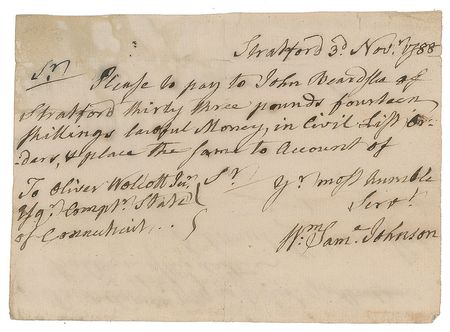 Stratford 3d. Novr. 1788
Sr,
Please to pay to John Beardslee of
Stratford thirty three pounds fourteen
shillings lawful Money, in Civil List Or-
-ders, & place the same to Account of
Sr
Yr. most humble
Servt.
Wm. Saml. Johnson
To Oliver Wolcott Junr.
Esqr. Comptr. State
of Connecticut...